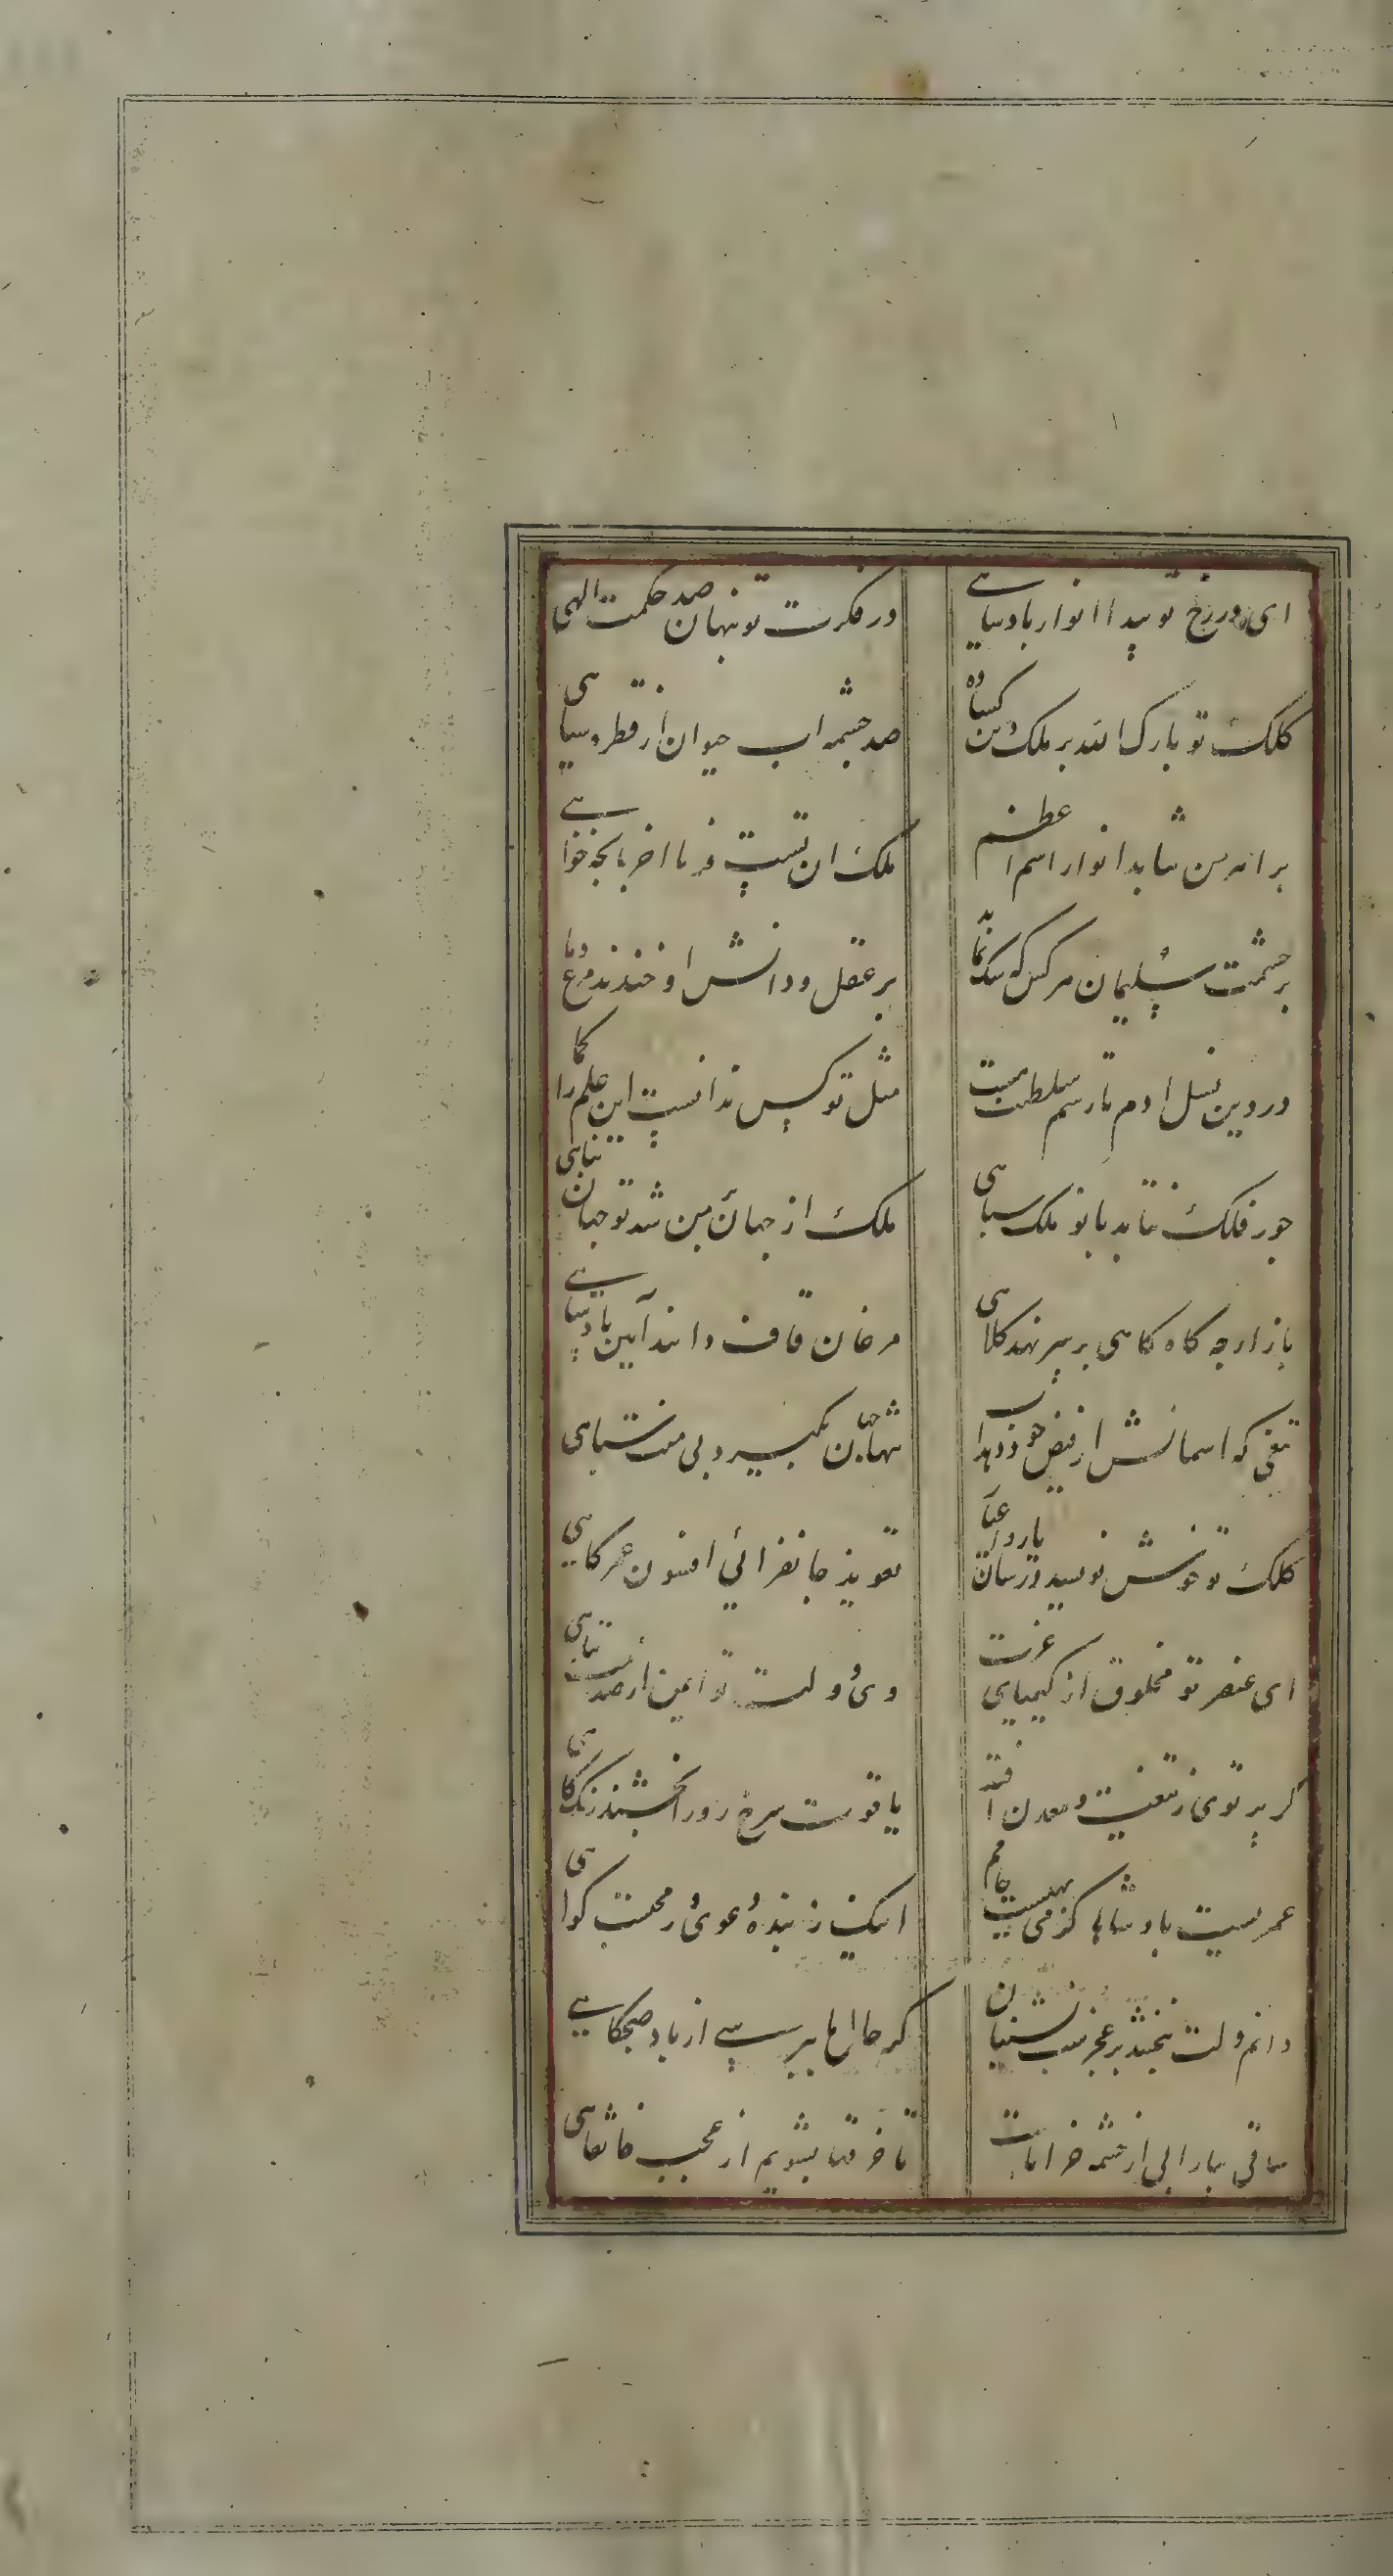 ای در رخ تو پیدا انوار پادشاهی
در فکرت تو پنهان صد حکمت الهی
کلک تو بارک الله بر ملک دین گشاده
صد چشمه اب حیوان از قطره سیاهی
بر اهرمن نتابد انوار اسم اعظم
ملک ان تست فرما اخر بانچه خواهی
در حشمت سلیمان هر کس که شک نماید
بر عقل و دانش او خندند مرغ و ماهی
در دین نسل ادم تا رسم سلطنت
مثل تو کس ندانست این علم را کماهی
جور فلک نتابد با تو ملک سپاهی
ملک از جهان من شد تو جهان تناهی
باز ارچه گاه گاهی بر سر نهد کلاهی
مرغان قاف دانند آیین پادشاهی
تیغی که اسمانش از فیض خود دهد اب
تنها جهان بگیرد بی منت سپاهی
کلک تو خوش نویسد در شان یار و اغیار
تعویذ جانفزائی افسون عمر کاهی
ای عنصر تو مخلوق از کیمیای عزت
وی دولت تو ایمن از صدمت تباهی
گر پرتوی ز تیغت در معدن افتد
یاقوت سرخ رو را بخشند رنگ کاهی
عمریست پادشاها کز می تهیست جامم
اینک ز بنده دعوی وز محتسب گواهی
دانم دلت ببخشد بر عجز شب نشینان
گر حال ما بپرسی از باد صبحگاهی
ساقی بیار ابی از چشمه خرابات
تا خرقها بشویم از عجب خانقاهی